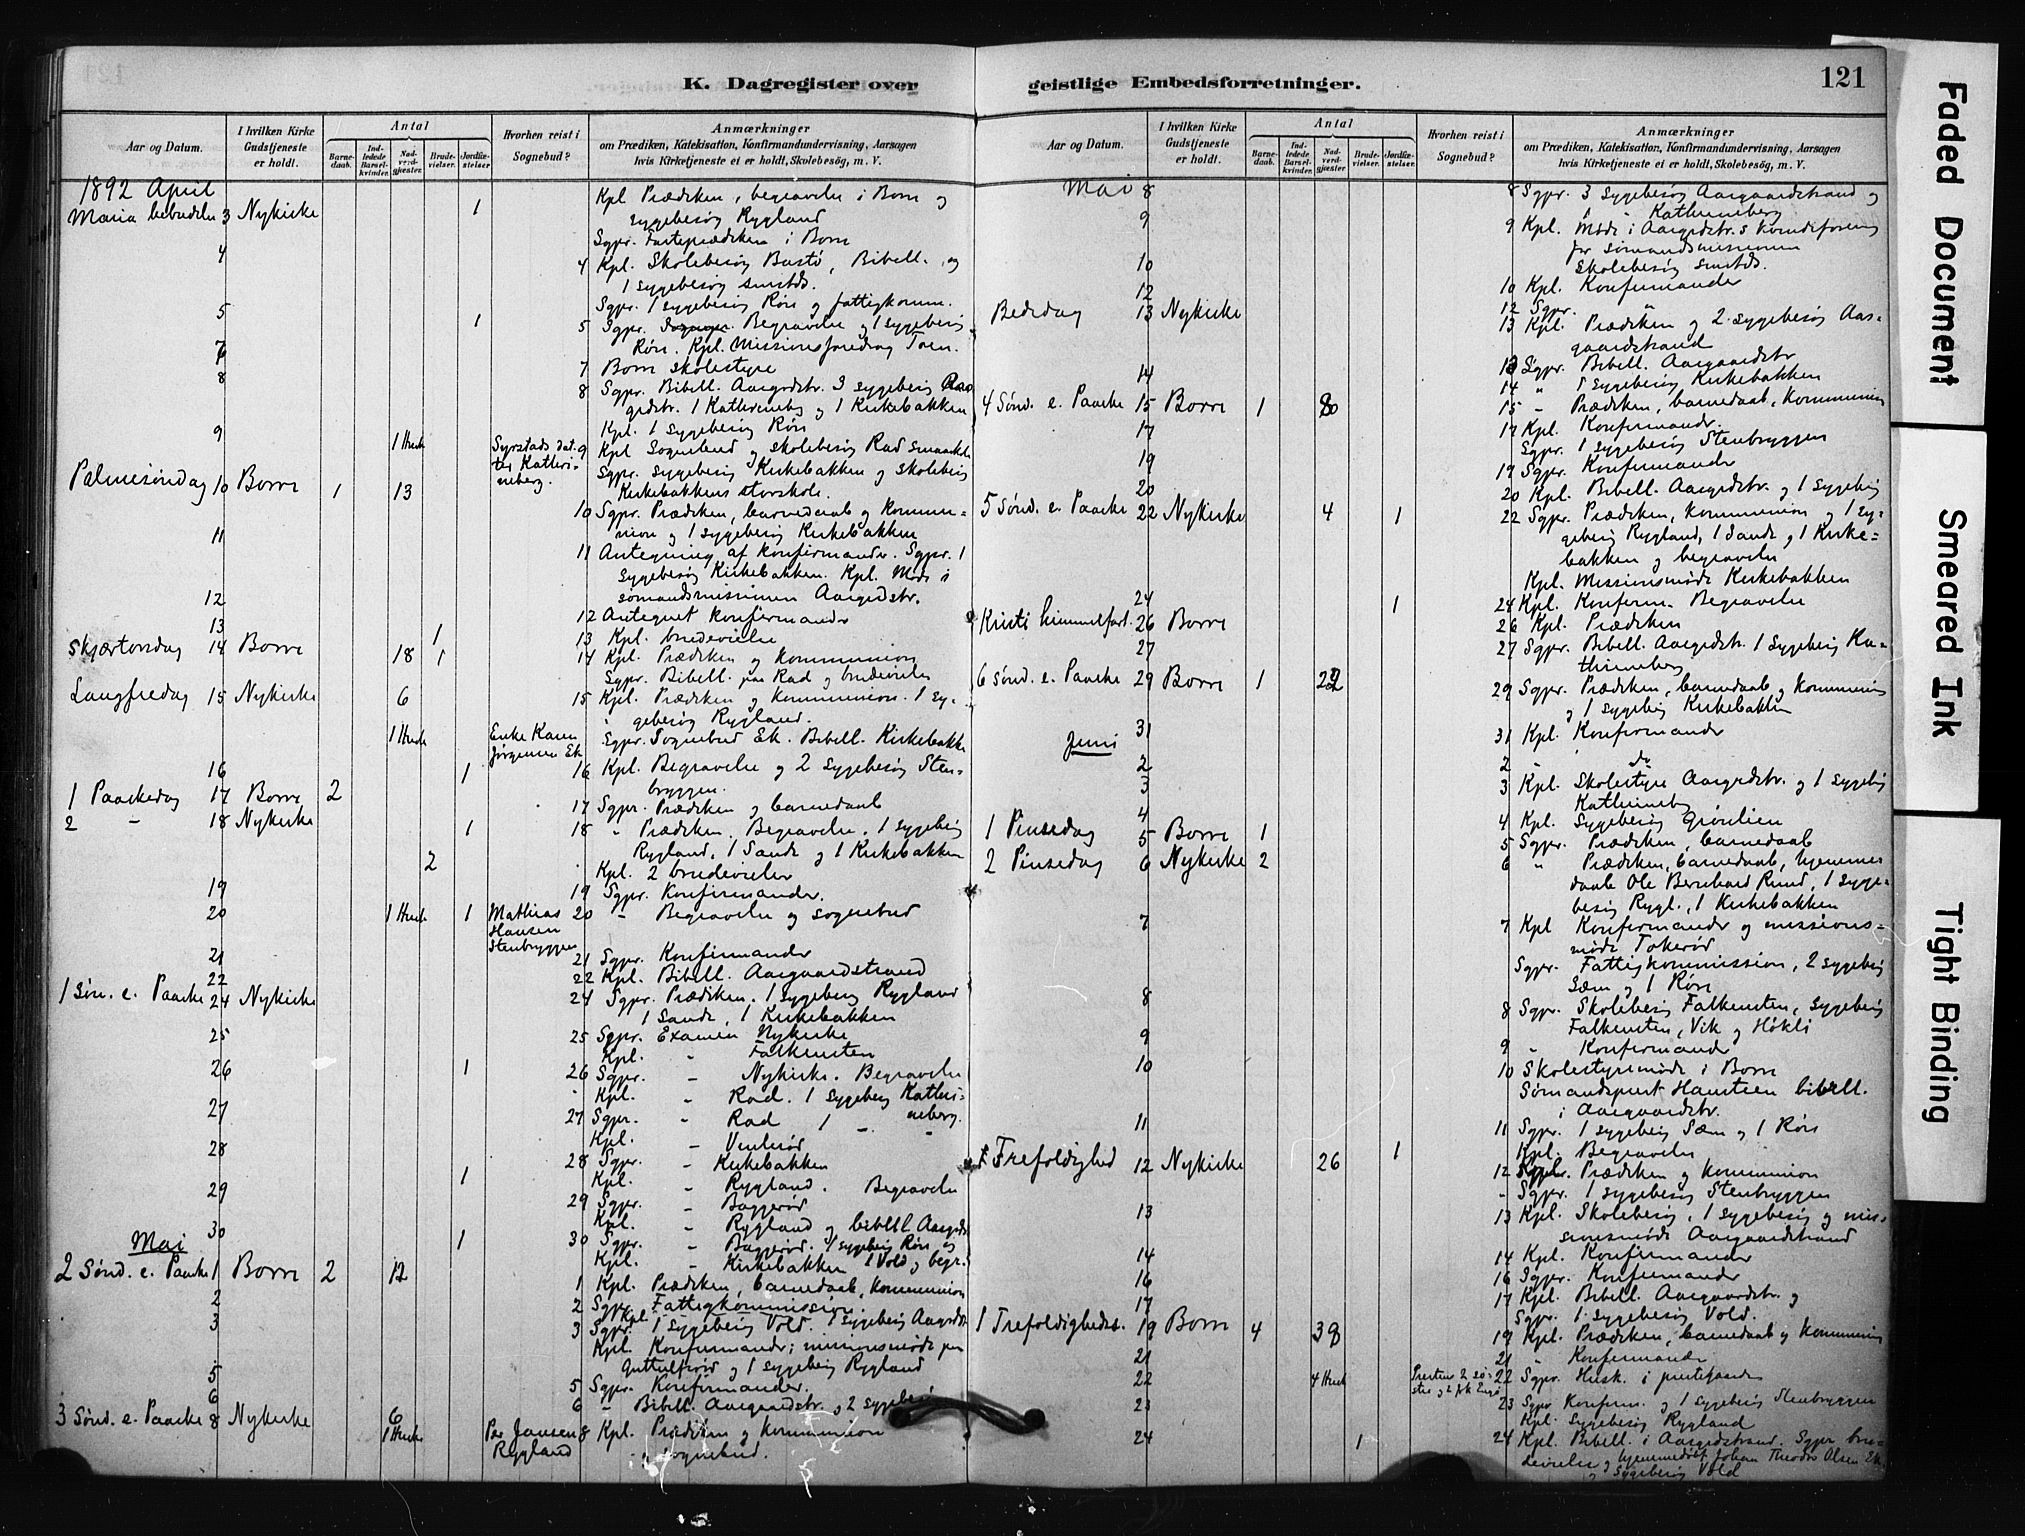 K. Dagregister over
Aar og Datum.
I hvilken Kirke Gudstjeneste er holdt.
Antal
Barnedaab.
Indledede Barselkvinder.
Nadverdgjester.
Brudevielser.
Jordfæstelser.
Hvorhen reist i Sognebud?
Anmærkninger
om Prædiken, Katekisation, Konfirmandundervisning, Aarsagen
hvis Kirketjeneste ei er holdt, Skolebesög, m. V.
1892 April
Maria bebudelse 3 Nykirke 1 Kpl Prædiken, begravelse i Borre og
sygebesøg Rygland
Sgpr. Fasteprædiken i Borre
4 4 Kpl. Skolebesøg Bastø, Bibell. og
1 sygebesøg smstds.
Sgpr. 1 sygebesøg Røre og fattigkomm.
5 1 5 Sgpr. Begravelse og 1 sygebesøg
Røre. Kpl. Missionsforedrag
7 7 Borre skolestyre
8 8 Sgpr. Bibell. Aasgrdstr. 3 sygebesøg Aas
grdstr. 1 Kathrineberg og 1 Kirkebakken
Kpl. 1 sygebesøg Røre
9 9 Kpl Sognebud og skolebesøg Rød
Sgpr. sygebesøg Kirkebakken og skolebesøg
Kirkebakkens storskole.
Palmesøndag 10 Borre 1 13 10 Sgpr. Prædiken, barnedaab og kommu-
nion og 1 sygebesøg Kirkebakken
11 11 Antegning af konfirmander. Sgpr. 1
sygebesøg Kirkebakken. Kpl. Møde i
sømandsmissionen Aasgrdstr.
12 12 Antegnet konfirmander
13 1 13 Kpl. brudevielse
Skjærtorsdag 14 Borre 18 1 14 Kpl. Prædiken og kommunion
Sgpr. Bibell. paa Rød og brudevielse
Langfredag 15 Nykirke 6 15 Kpl. Prædiken og kommunion. 1 sy-
gebesøg Rygland.
Enke Karen
Jørgensen Ek
Sgpr. Sognebud Ek. Bibell. Kirkebakke
16 1 16 Kpl. Begravelse og 2 sygebesøg Sten-
bryggen.
1 Paaskedag 17 Borre 2 17 Sgpr. Prædiken og barnedaab
2 - 18 Nykirke 1 18 " Prædiken. Begravelse. 1 sygebesøg
Rygland, 1 Sande og 1 Kirkebakken
2 Kpl. 2 brudevielser
19 19 Sgpr. Konfirmander.
20 1 Mathias Hansen Stenbryggen 20 - Begravelse og sognebud
21 21 Sgpr. Konfirmander
22 22 Kpl. Bibell. Aasgaardstrand
1 Søn. e. Paaske 24 Nykirke 24 Sgpr. Prædiken. 1 sygebesøg Rygland
1 Sande, 1 Kirkebakken
25 25 Sgpr. Examen Nykirke
Kpl. - Falkensten
26 1 26 Sgpr. - Nykirke. Begravelse
Kpl. - Rød. 1 sygebesøg Kathri-
neberg.
27 27 Sgpr. - Rød 1 - -
Kpl. -
28 28 Sgpr. - Kirkebakken
1 Kpl. - Rygland. Begravelse
29 29 Sgpr. - Baggerød
Kpl. - Rygland og bibell. Aasgrdstr
30 1 30 Sgpr. - Baggerød. 1 sygebesøg Røre og
Kpl. - Kirkebakken 1 Vold og begr.
Mai
2 Sønd. e. Paaske 1 Borre 2 12 1 Kpl. Prædiken, barnedaab, kommunion
2 2 Sgpr. Fattigkommission.
3 3 Sgpr. 1 sygebesøg Vold. 1 sygebesøg Aasgrdstr
Kpl. Konfirmander; missionsmøde paa
og 1 sygebesøg Rygland
5 5 Sgpr. Konfirmander.
6 6 - Bibell. Aasgaardstr. og 2 sygebesøg
3 Sønd. e. Paaske 8 Nykirke 6 Per Jansen Rygland 8 Kpl. Prædiken og kommunion
og sognebud.
geistlige Embedsforretninger.
121
Aar og Datum.
I hvilken Kirke Gudstjeneste er holdt.
Antal
Barnedaab.
Indledede Barselkvinder.
Nadverdgjester.
Brudevielser.
Jordfæstelser.
Hvorhen reist i Sognebud?
Anmærkninger
om Prædiken, Katekisation, Konfirmandundervisning, Aarsagen
hvis Kirketjeneste ei er holdt, Skolebesög, m. V.
Mai 8 8 Sgpr. 3 sygebesøg Aasgaardstrand og
1 " Kathrineberg
9 9 Kpl. Møde i Aasgrdstr.s kvindeforening
for sømandsmissionen
Skolebesøg smstds.
10 10 Kpl. Konfirmander
12 12 Sgpr. "
Bededag 13 Nykirke 13 Kpl. Prædiken og 2 sygebesøg Aas-
gaardstrand
13 Sgpr. Bibell. Aasgaardstr
14 14 " 1 sygebesøg Kirkebakken
4 Sønd. e. Paaske 15 Borre 1 8 15 - Prædiken, barnedaab, kommunion
17 17 Kpl. Konfirmandr.
Sgpr. 1 sygebesøg Stenbryggen
19 19 Sgpr. Konfirmander
20 20 Kpl. Bibell. Aasgrdstr. og 1 sygebesøg
5 Sønd. e. Paaske 22 Nykirke 4 1 22 Sgpr. Prædiken, kommunion og 1 sy-
gebesøg Rygland, 1 Sande og 1 Kirke-
bakken og begravelse
Kpl. Missionsmøde Kirkebakken
24 1 24 Kpl. Konfirm. Begravelse
Kristi himmelfart. 26 Borre 26 Kpl. Prædiken
27 27 Sgpr. Bibell. Aasgrdstr. 1 sygebesøg Ka-
thrineberg
6 Sønd. e. Paaske 29 Borre 1 22 29 Sgpr. Prædiken, barnedaab og kommunion
og 1 sygebesøg Kirkebakken
31 31 Kpl. Konfirmander
Juni
2 2 - do
3 3 Kpl. Skolestyre Aasgrdstr. og 1 sygebesøg
Kathrineberg
4 4 Kpl. Sygebesøg Grønlien
1 Pinsedag 5 Borre 1 5 Sgpr. Prædiken, barnedaab
2 Pinsedag 6 Nykirke 2 6 " Prædiken, barnedaab, hjemme-
daab Ole Bernhard Rund, 1 syge-
besøg Rygl., 1 Kirkebakken
7 7 Kpl Konfirmander og missions-
møde Tokerød
Sgpr. Fattigkommission, 2 sygebesøg
Sæm og 1 Røre
8 8 Sgpr. Skolebesøg Falkensten, sygebesøg
Falkensten, Vik og Høkli
9 9 - Konfirmander
10 10 Skolestyremøde i Borre
Sømandsprest Hansteen bibell.
i Aasgaardstr.
11 11 Sgpr. 1 sygebesøg Sæm og 1 Røre
Kpl. Begravelse
Trefoldighed 12 Nykirke 26 1 12 Kpl. Prædiken og kommunion
- Sgpr. 1 sygebesøg Stenbryggen
13 13 Kpl. Skolebesøg, 1 sygebesøg og mis-
sionsmøde Aasgaardstrand
14 14 Kpl. Konfirmander
16 16 Sgpr. Konfirmander
17 17 Kpl. Bibell. Aasgaardstr. og
Sgpr. 1 sygebesøg Vold.
1 Trefoldighedss. 19 Borre 4 38 19 Kpl. Prædiken, barnedaab og kommunion
21 21 " Konfirmander
22 22 Sgpr. i prestegaarden
23 23 Sgpr Konfirm. og 1 sygebesøg Stenbryggen
Kpl. Sygebesøg Rygland
24 1 24 Kpl. Bibell. i Aasgrdstrand. Sgpr bru-
devielse og hjemmedøbt Johan Theodor Olsen Ek
og sygebesøg Vold
Faded Document
Smeared Ink
Tight Binding